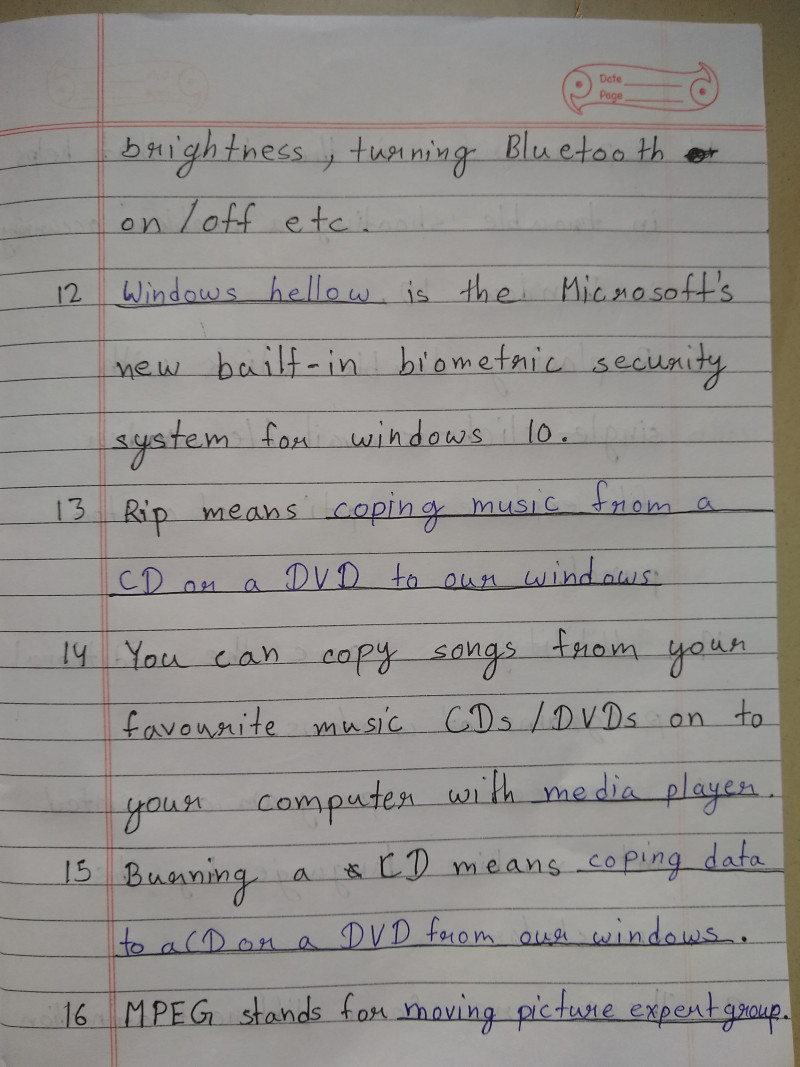 Date
Page
brightness, turning Bluetooth
on/off etc.
12 Windows hellow is the Microsoft's
new built-in biometric security
system for windows 10.
13 Rip means coping music from a
CD or a DVD to our windows.
14 You can copy songs from your
favourite music CDs/DVDs on to
your computer with media player.
15 Burning a CD means coping data
to a CD or a DVD from our windows.
16 MPEG stands for moving picture expert group.